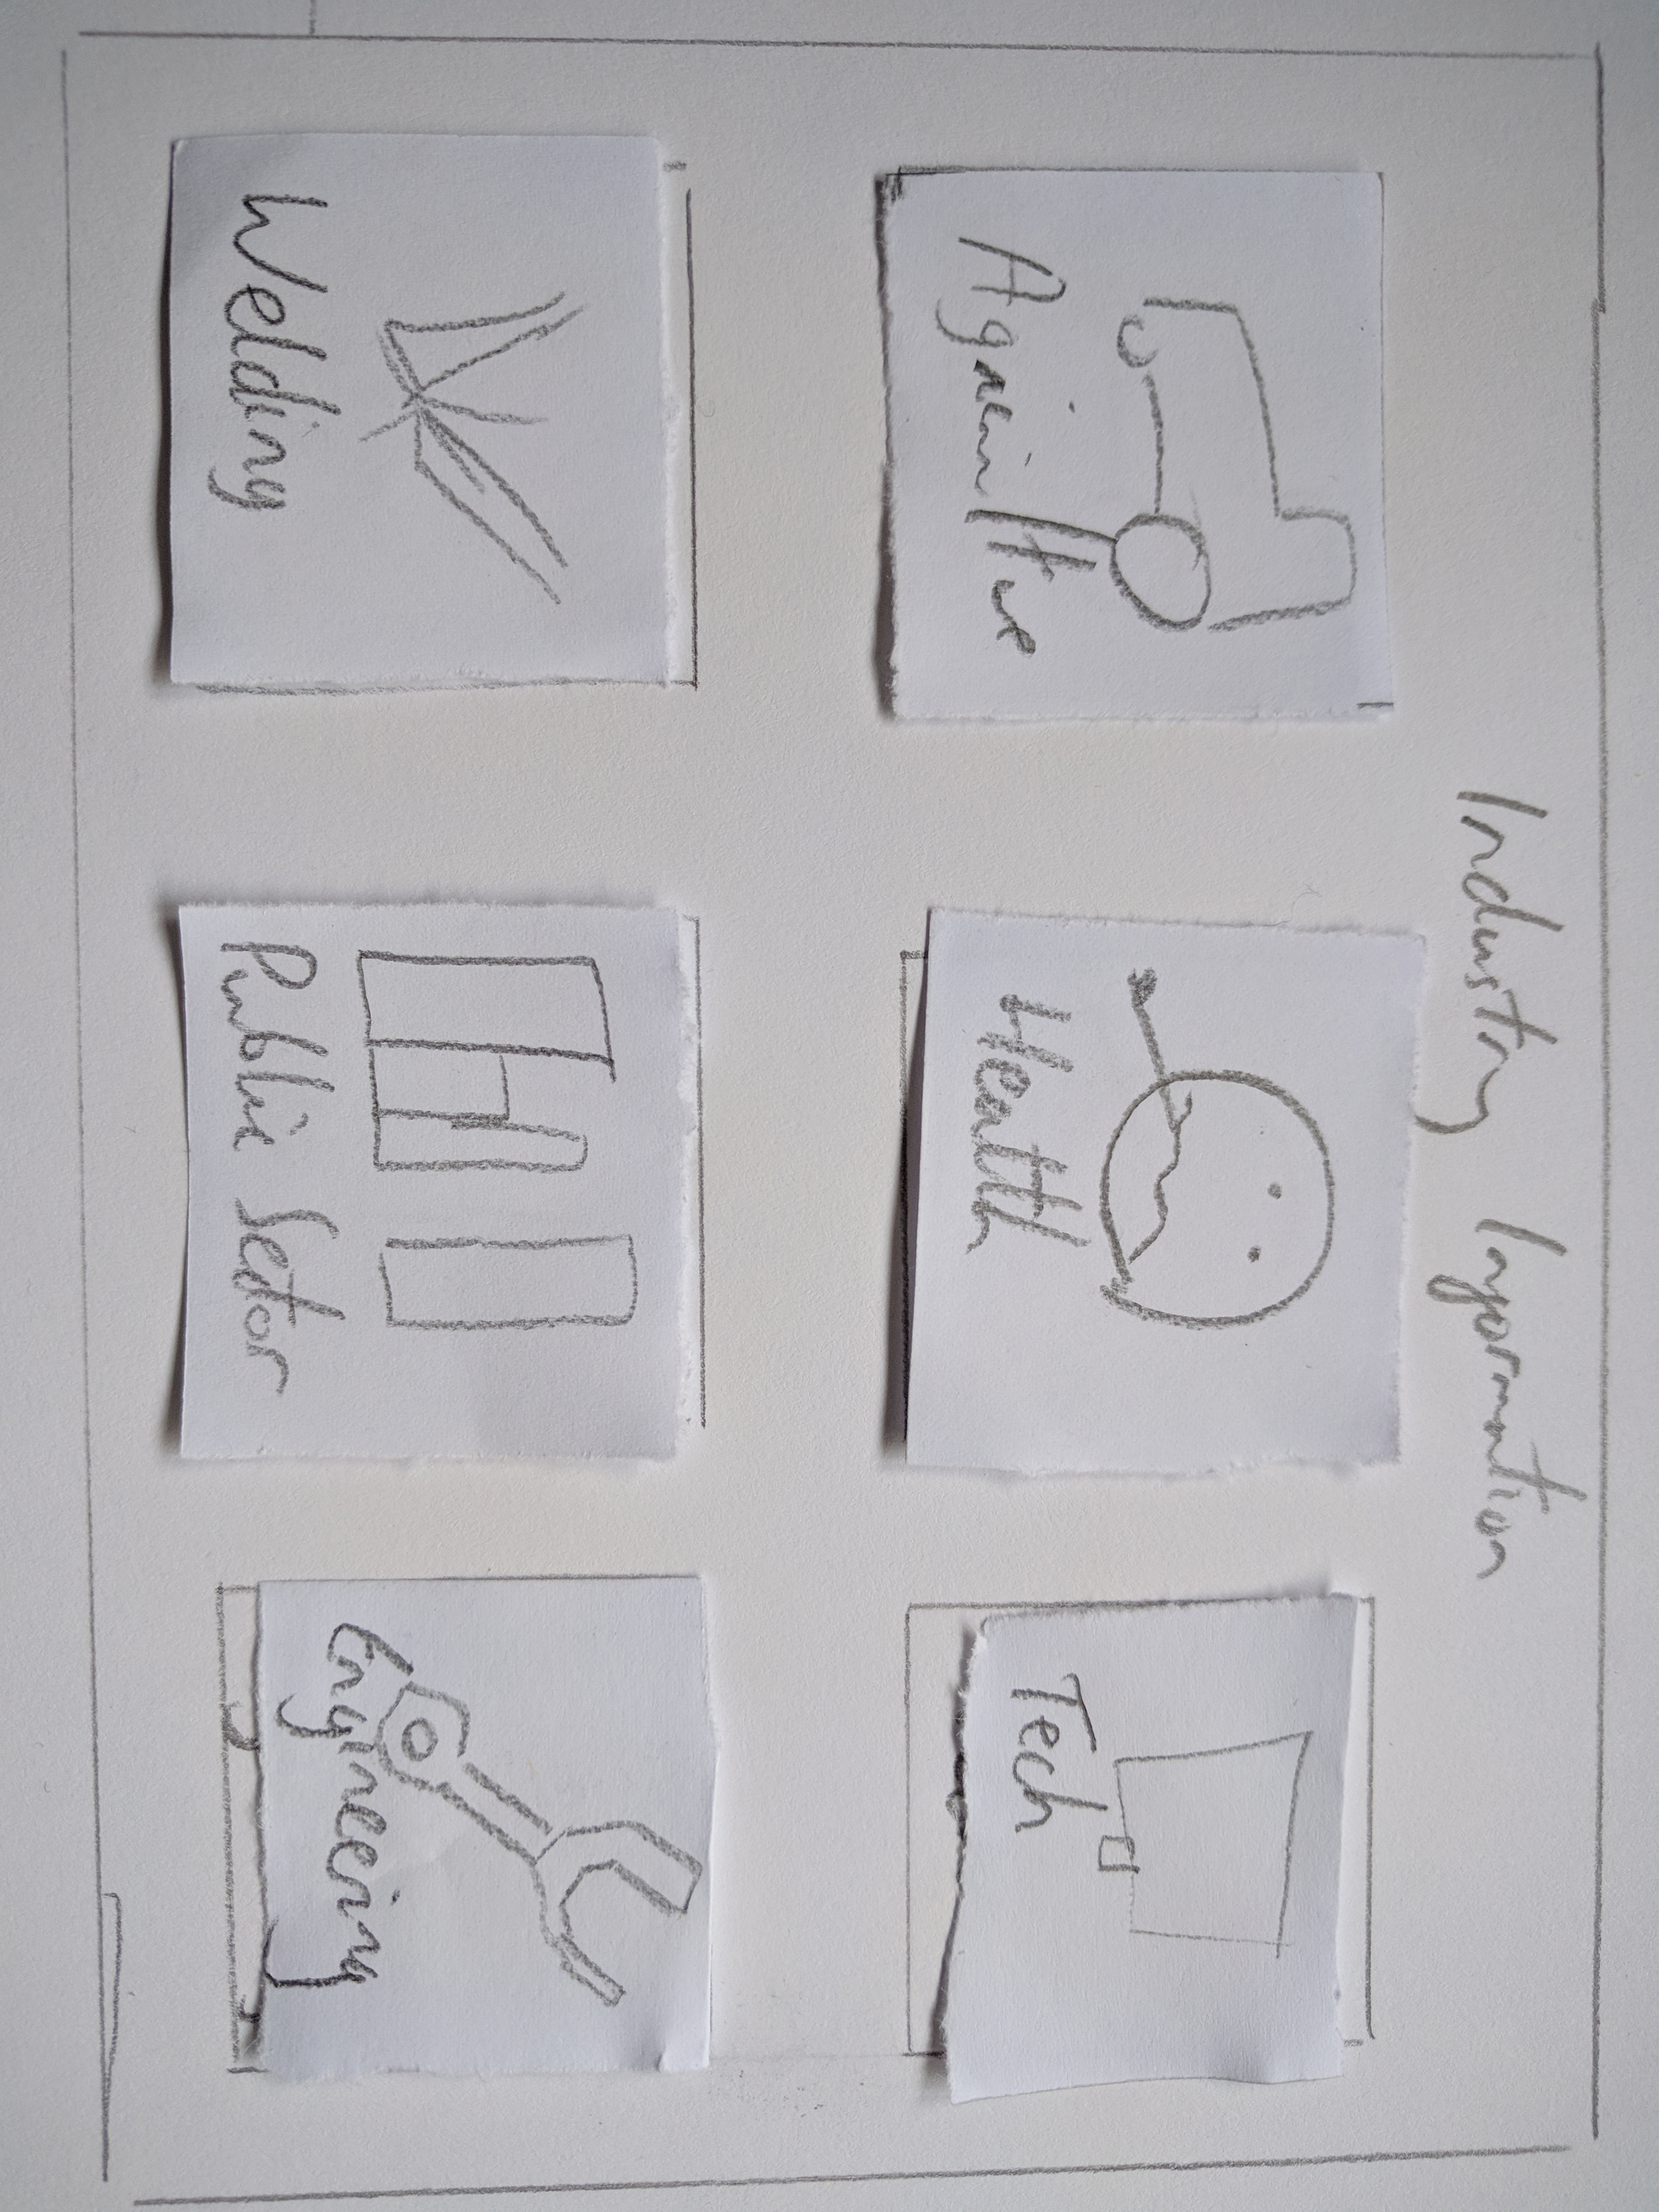 Industry Information
Agriculture
Health
Tech
Welding
Public Sector
Engineering